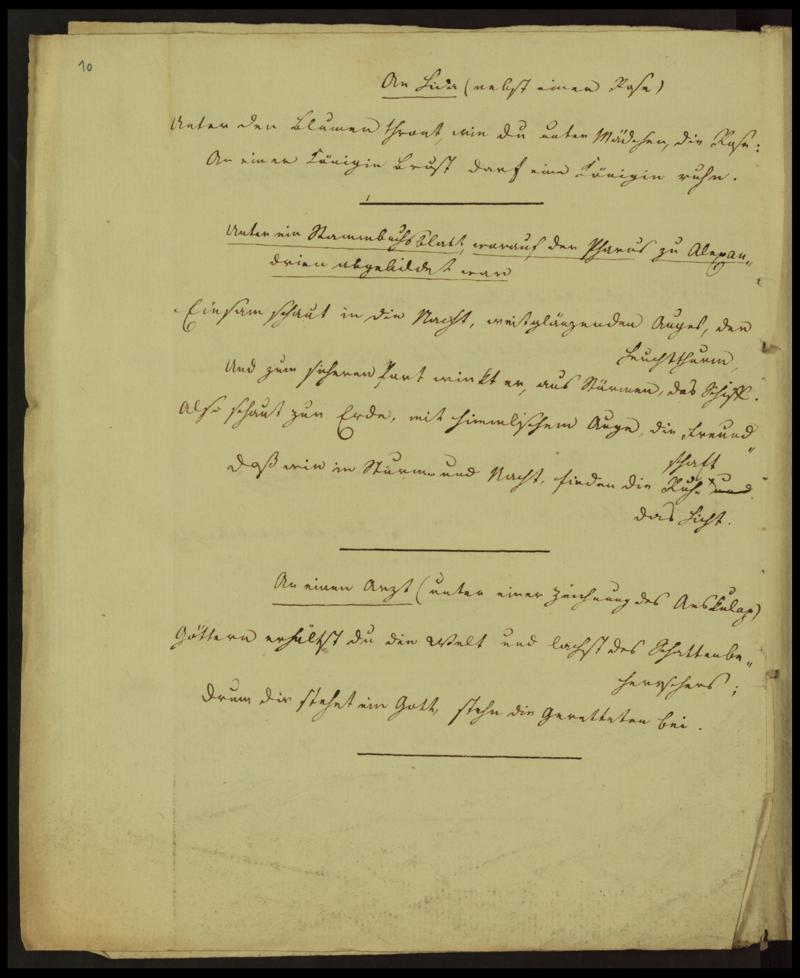 10
An Lida (nebst einer Rose)
Unter den Blumen thront, wie du unter Mädchen, die Rose:
An einer Königin Brust darf eine Königin ruhn.
Unter ein Stammbuchsblatt, worauf der Pharus zu Alexan„
drien abgebildet war
Einsam schaut in die Nacht, weitglänzenden Auges, der
Leuchtthurm,
Und zum sicheren Port winkt er, aus Stürmen, das Schiff.
Also schaut zur Erde, mit himmlischem Auge, die Freund„
schaft
Daß wir in Sturm und Nacht, finden die Ruh, und
das Licht.
An einen Arzt (unter einer Zeichnung des Aeskulap)
Göttern erhältst du die Welt und lachst des Schattenbe„
herrschers;
Drum dir stehet ein Gott, stehn die Geretteten bei.